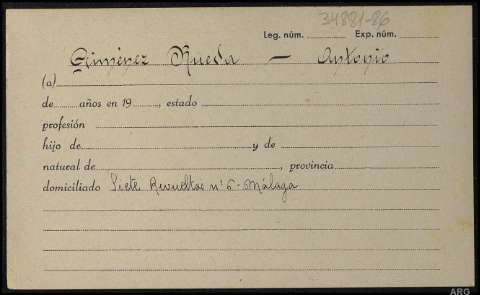 34881-86
Leg. núm. Exp. núm.
Giménez Rueda — Antonio
(a)
de años en 19 , estado
profesión
hijo de y de
natural de , provincia
domiciliado Siete Revueltas nº 6 - Málaga
ARG